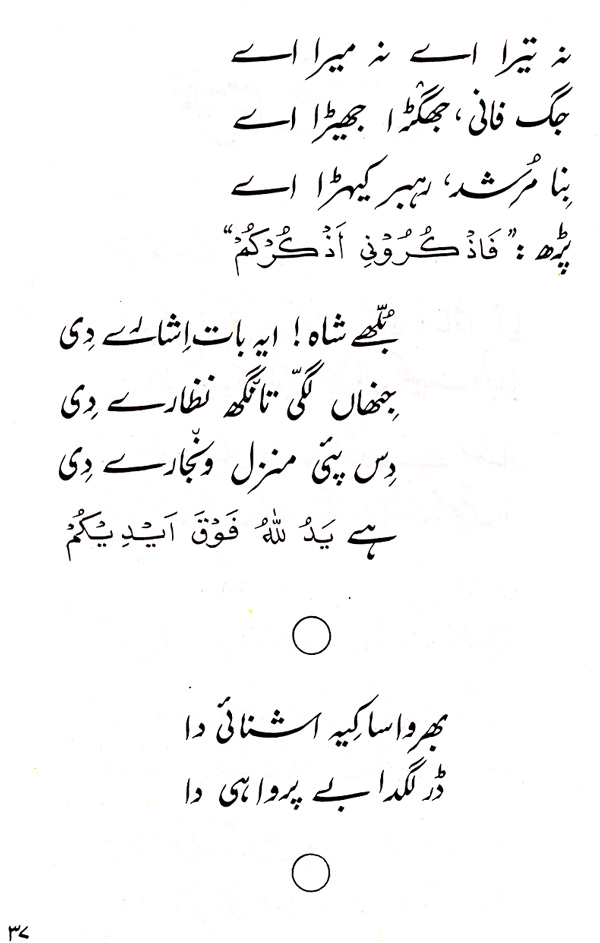 نہ تیرا اے نہ میرا اے
جگ فانی، جھگڑا جھیڑا اے
بِنا مُرشد، رہبر کیہڑا اے
پڑھ : ”فَاذْكُرُوْنِي أَذْكُرْكُمْ“
بُلّھے شاہ! ایہ بات اِشارے دِی
جِنھاں لگّی تانگھ نظارے دِی
دِس پئی منزل ونجارے دِی
ہے يَدُ اللّٰهُ فَوْقَ اَيْدِيْكُمْ
بھرواسا کِیہ اشنائی دا
ڈر لگدا بے پرواہی دا
۳۷